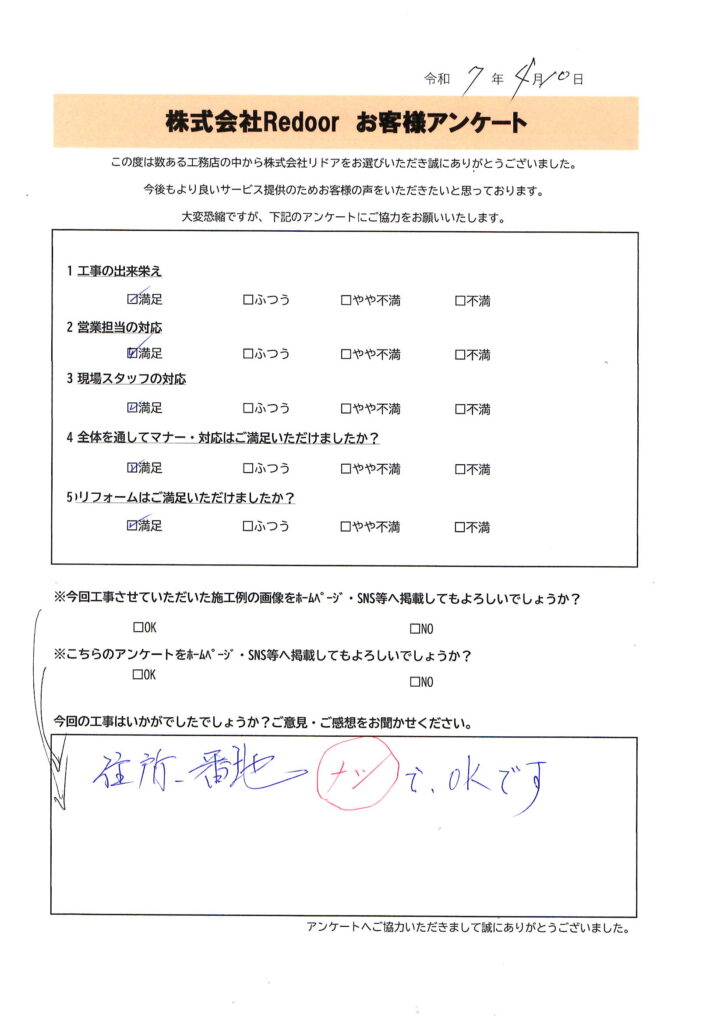 令和 7 年 4月10日
株式会社Redoor お客様アンケート
この度は数ある工務店の中から株式会社リドアをお選びいただき誠にありがとうございました。
今後もより良いサービス提供のためお客様の声をいただきたいと思っております。
大変恐縮ですが、下記のアンケートにご協力をお願いいたします。
1 工事の出来栄え
☑満足 □ふつう □やや不満 □不満
2 営業担当の対応
☑満足 □ふつう □やや不満 □不満
3 現場スタッフの対応
☑満足 □ふつう □やや不満 □不満
4 全体を通してマナー・対応はご満足いただけましたか？
☑満足 □ふつう □やや不満 □不満
5)リフォームはご満足いただけましたか？
☑満足 □ふつう □やや不満 □不満
※今回工事させていただいた施工例の画像をﾎｰﾑﾍﾟｰｼﾞ・SNS等へ掲載してもよろしいでしょうか？
□OK □NO
※こちらのアンケートをﾎｰﾑﾍﾟｰｼﾞ・SNS等へ掲載してもよろしいでしょうか？
□OK □NO
今回の工事はいかがでしたでしょうか？ご意見・ご感想をお聞かせください。
住所、番地 ナシ で、OKです
アンケートへご協力いただきまして誠にありがとうございました。